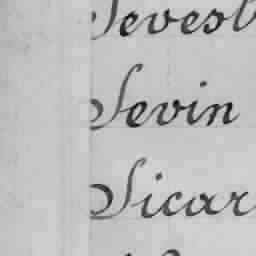 Sevesl
Sevin
Sicar